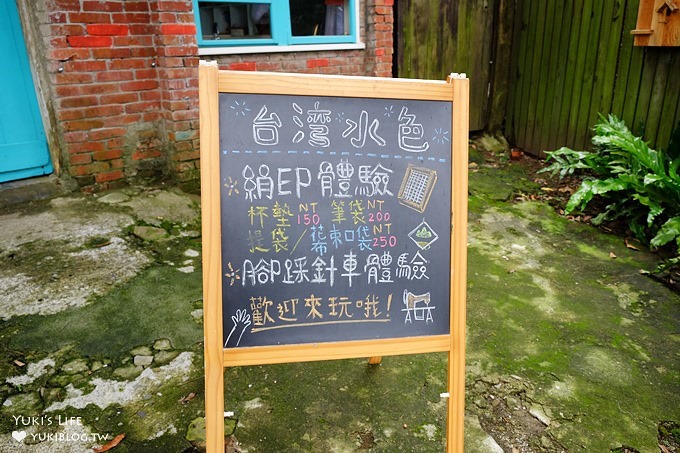 台灣水色
絹印體驗
杯墊 NT 150 筆袋 NT 200
提袋/花布束口袋 NT 250
腳踩針車體驗
歡迎來玩哦!
YUKI'S LIFE
YUKIBLOG.TW